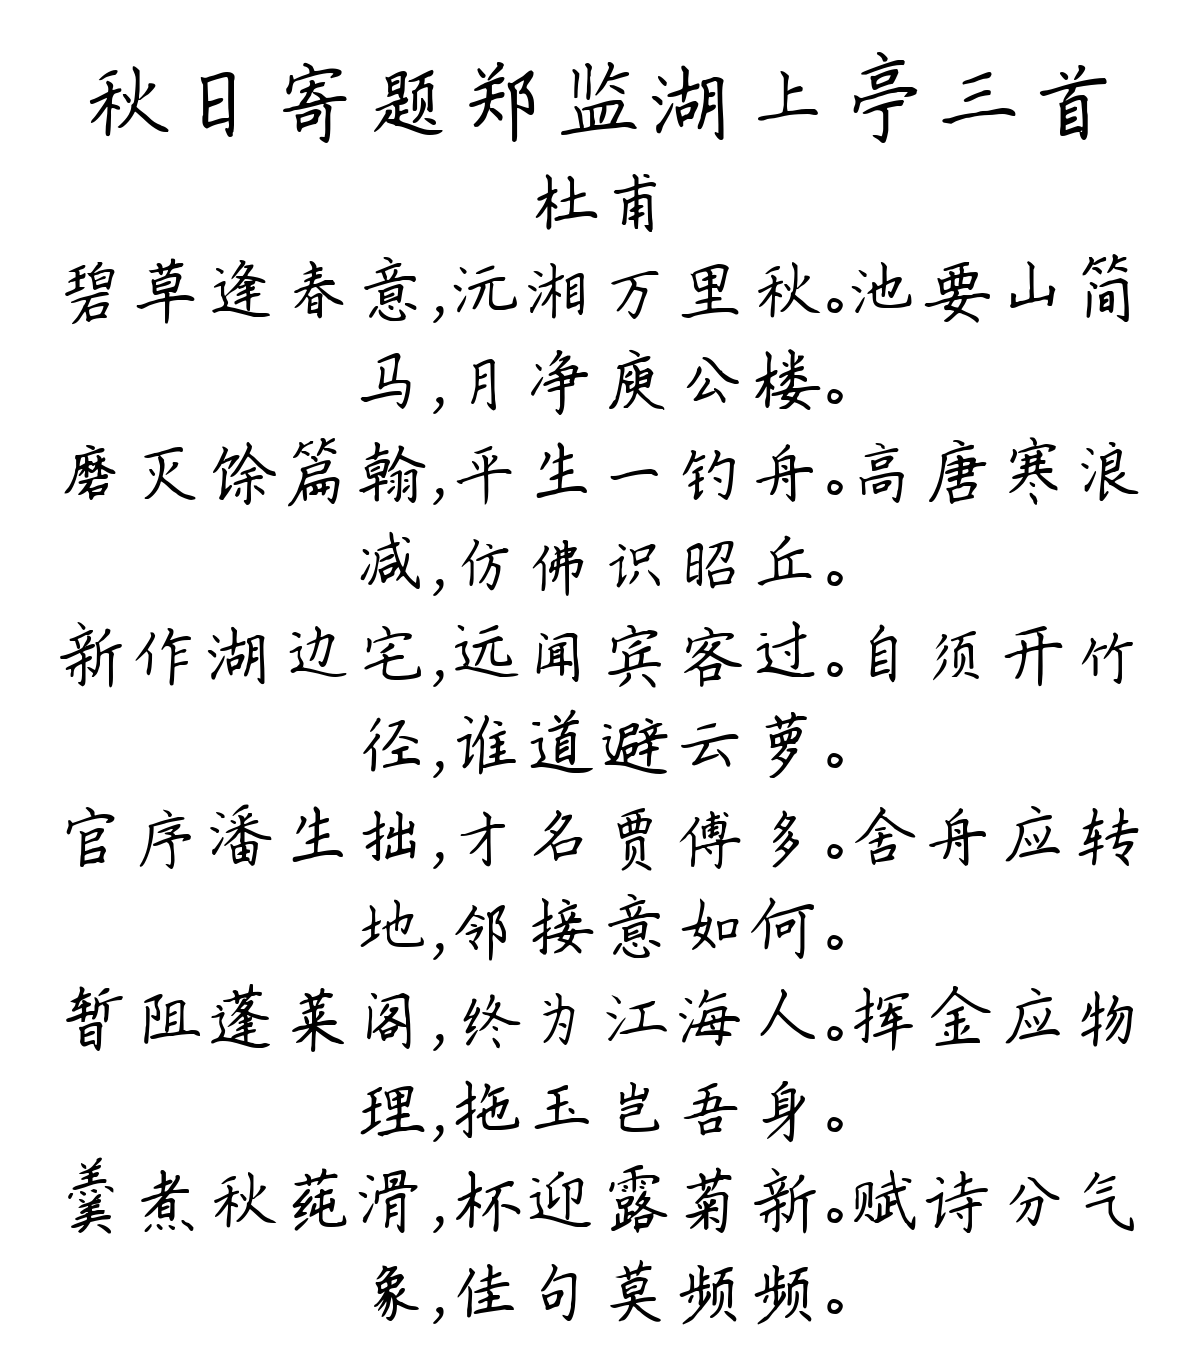 秋日寄题郑监湖上亭三首
杜甫
碧草逢春意,沅湘万里秋。池要山简
马,月净庾公楼。
磨灭馀篇翰,平生一钓舟。高唐寒浪
减,仿佛识昭丘。
新作湖边宅,远闻宾客过。自须开竹
径,谁道避云萝。
官序潘生拙,才名贾傅多。舍舟应转
地,邻接意如何。
暂阻蓬莱阁,终为江海人。挥金应物
理,拖玉岂吾身。
羹煮秋莼滑,杯迎露菊新。赋诗分气
象,佳句莫频频。